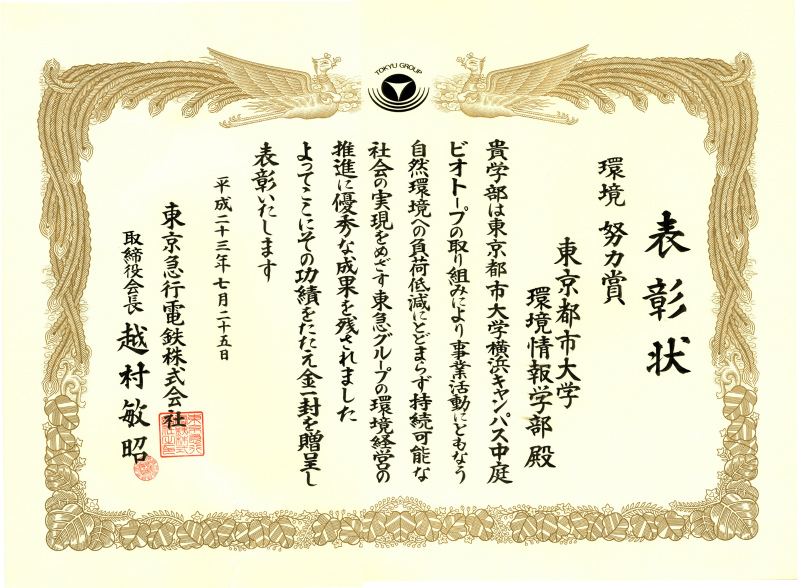 TOKYU GROUP
表彰状
環境 努力賞
東京都市大学
環境情報学部 殿
貴学部は東京都市大学横浜キャンパス中庭
ビオトープの取り組みにより事業活動にともなう
自然環境への負荷低減にとどまらず持続可能な
社会の実現をめざす東急グループの環境経営の
推進に優秀な成果を残されました
よってここにその功績をたたえ金一封を贈呈し
表彰いたします
平成二十三年七月二十五日
東京急行電鉄株式会社
取締役会長 越村敏昭